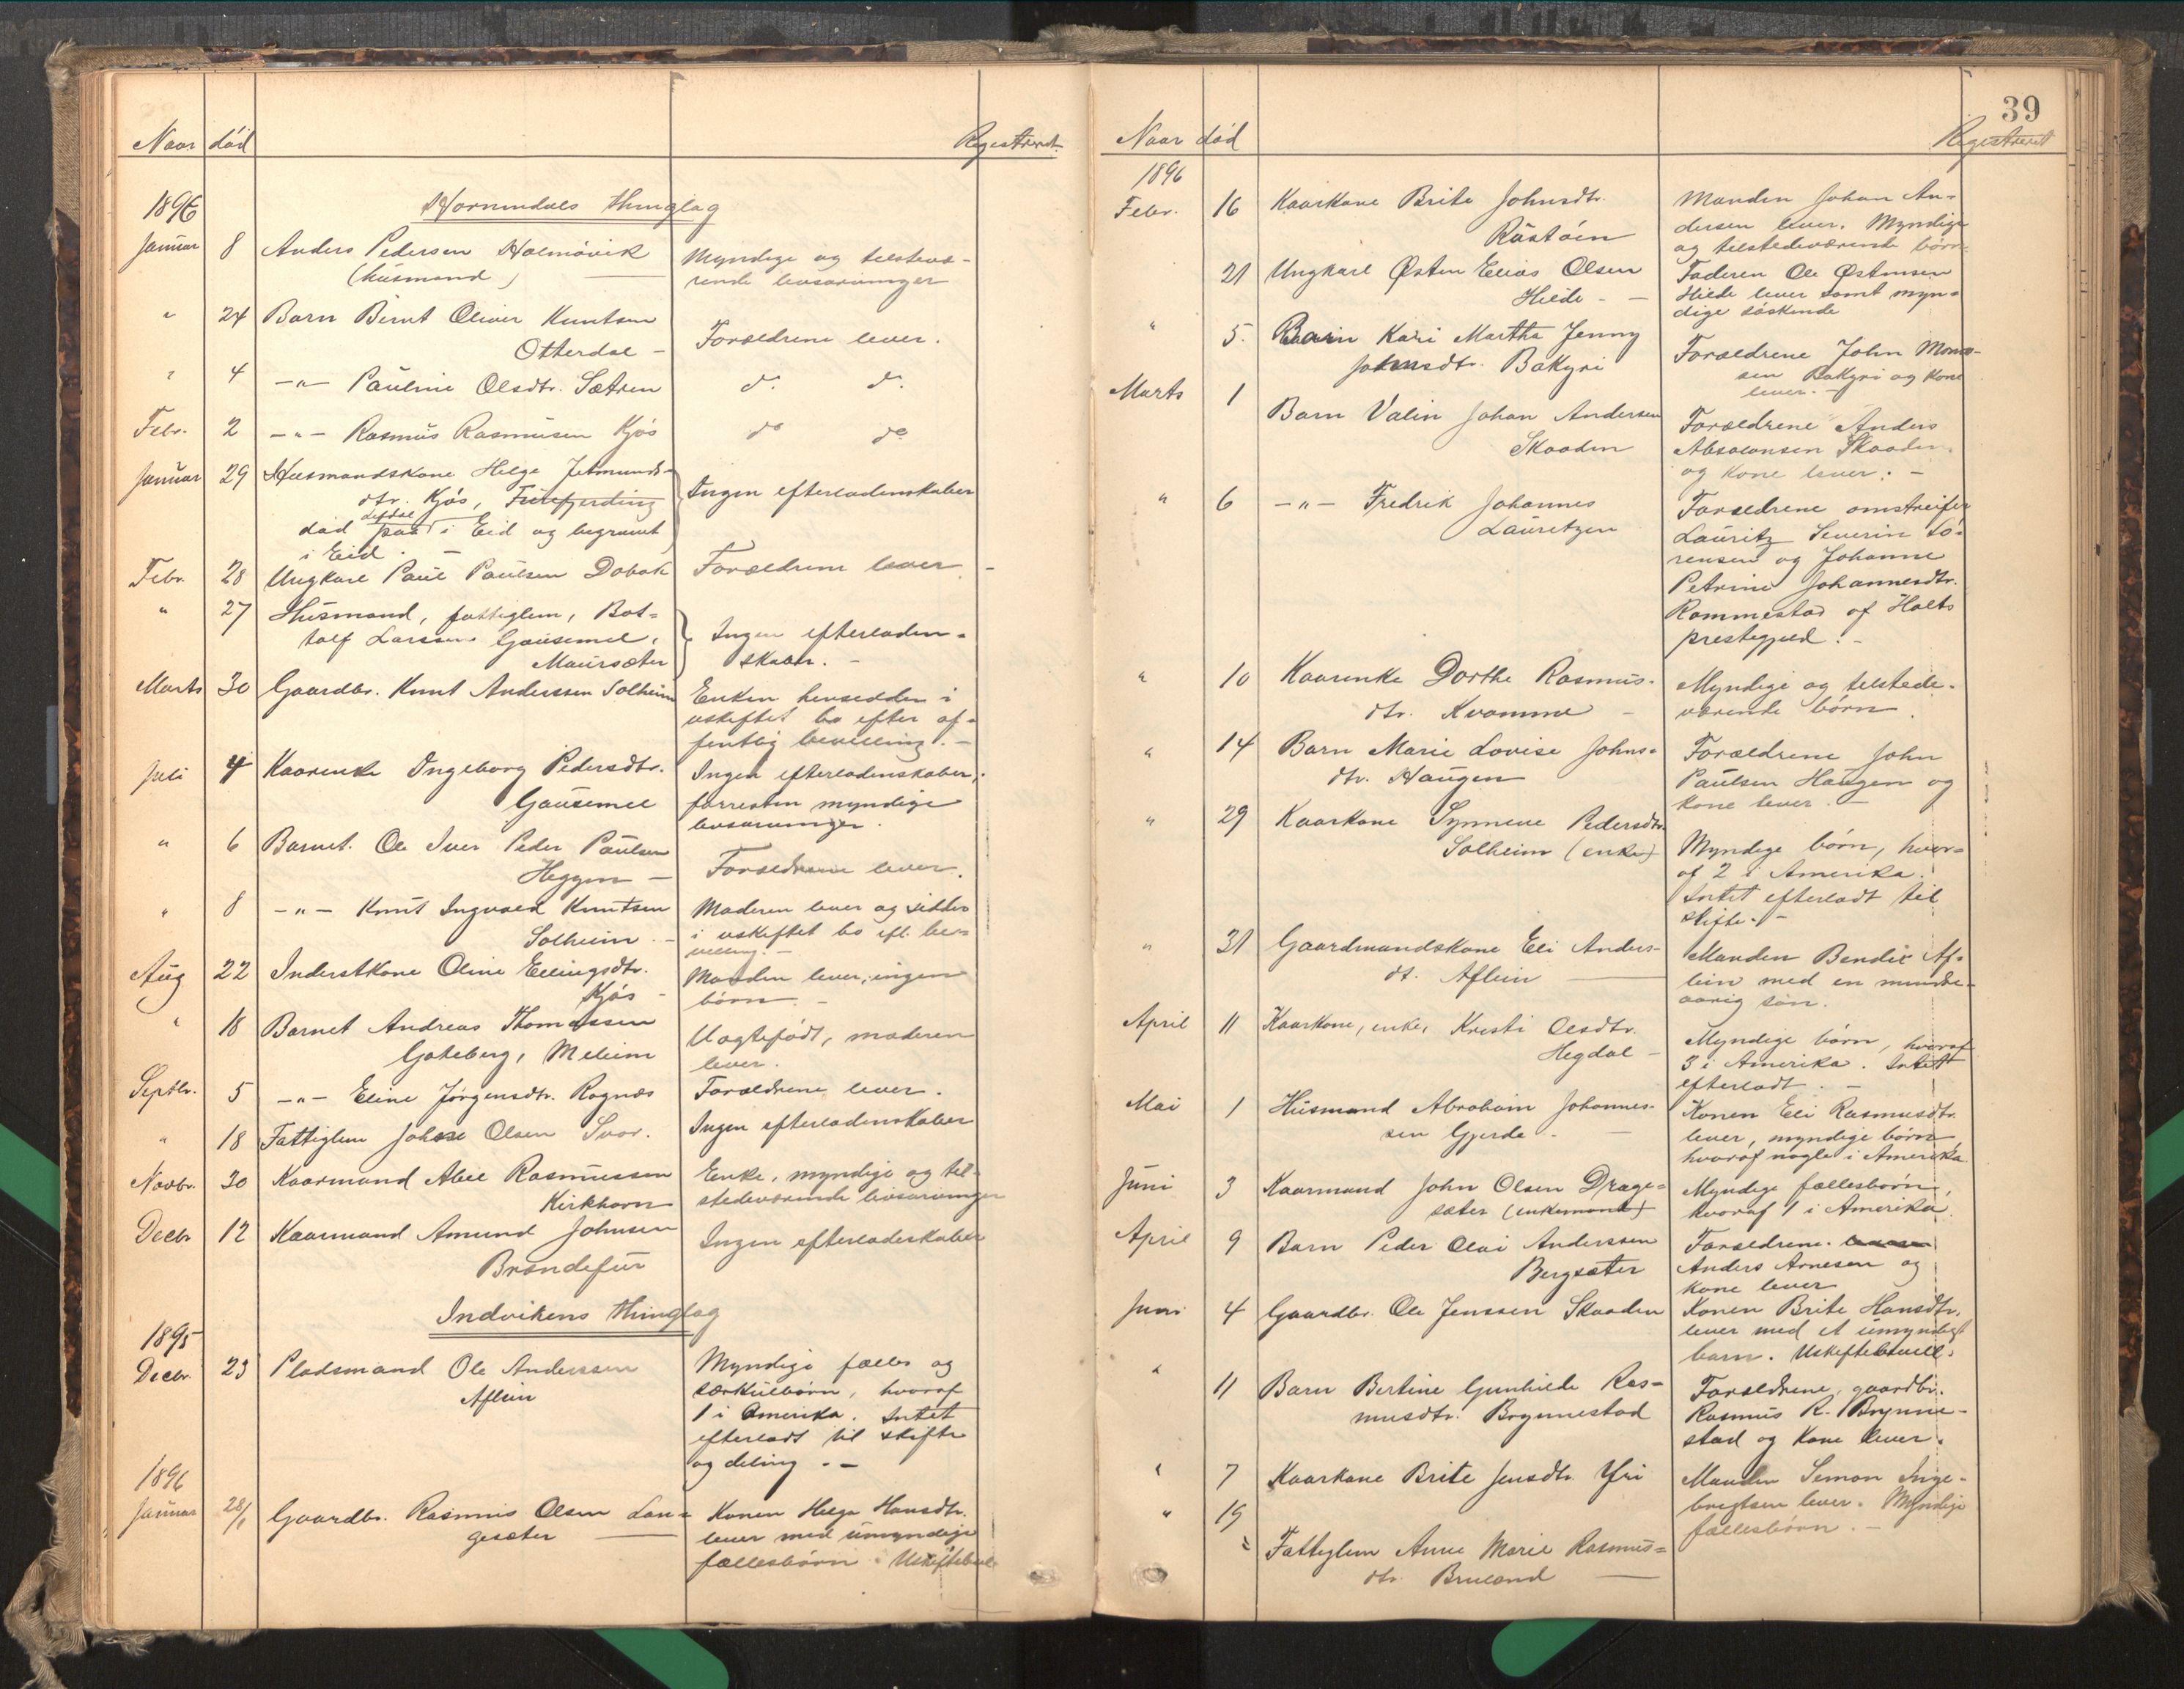 Naar død
Registreret
1896
Hornindals thinglag
Januar 8 Anders Pedersen Holmövik
(husmand)
Myndige og tilstedevæ-
rende livsarvinger
" 24 Barn Bernt Oliver Knutsen
Otterdal -
Forældrene lever.
" 4 -"- Pauline Olsdtr. Sætren
do do
Febr. 2 -"- Rasmus Rasmusen Kjós
do do
Januar 29 Husmandskone Helge Jetmunds-
dtr. Kjós,
död i Eid og begravet
i Eid. -
Ingen efterladenskaber
Febr. 28 Ungkarl Paul Paulsen Dobak
Forældrene lever -
" 27 Husmand, fattiglem, Bot-
tolf Larssen Gausemel,
Maursæter
Ingen efterladen-
skaber. -
Marts 30 Gaardbr. Knut Anderssen Solheim
Enken hensidder i
uskiftet bo efter of-
fentlig bevilling. -
Juli 4 Kaarenke Ingeborg Pedersdtr.
Gausemel
Ingen efterladenskaber,
forresten myndige
livsarvinger.
" 6 Barnet Ole Iver Peder Paulsen
Heggen -
Forældrene lever.
" 8 -"- Knut Ingvald Knutsen
Solheim. -
Moderen lever og sidder
i uskiftet bo eft. bev-
illing. -
Aug 22 Inderstkone Oline Ellingsdtr.
Kjós -
Manden lever, ingen
børn. -
" 18 Barnet Andreas Thomassen
Goteberg, Melheim
Uægtefödt, moderen
lever.
Septbr. 5 -"- Eline Jørgensdtr. Rognæs
Forældrene lever.
" 18 Fattiglem Johan Olsen Svor.
Ingen efterladenskaber
Novbr. 30 Kaarmand Abel Rasmussen
Kirkhorn
Enke, myndige og til-
stedeværende livsarvinger
Decbr 12 Kaarmand Amund Johnsen
Brændefur
Ingen efterladeskaber
Indvikens thinglag
1895
Decbr. 23 Pladsmand Ole Anderssen
Aflein
Myndige fælles og
særkulbörn, hvoraf
1 i Amerika. Intet
efterladt til skifte
og deling. -
1896
Januar 28/1 Gaardbr. Rasmus Olsen Lan-
gesæter
Konen Helge Hansdtr.
lever med umyndige
fællesbörn. Uskiftebevil.
39
Naar død
Registreret
1896
Febr. 16 Kaarkone Brite Johnsdtr.
Rustöen
Manden Johan An-
dersen lever. Myndige
og tilstedeværende børn.
21 Ungkarl Østen Elias Olsen
Hilde - -
Faderen Ole Østensen
Hilde lever samt myn-
dige søskende
" 5. Barn Kari Martha Jenny
Johnsdtr. Bakyri
Forældrene John Mons-
sen Bakyri og kone
lever. -
Marts 1 Barn Valin Johan Andersen
Skaaden
Forældrene Anders
Absalonsen Skaaden
og kone lever. -
" 6 -"- Fredrik Johannes
Lauritzen
Forældrene omstreifer
Lauritz Severin Sö-
rensen og Johanne
Petrine Johannesdtr.
Rommestad af Holts
prestegjeld. -
" 10 Kaarenke Dorthe Rasmus-
dtr. Kvamme -
Myndige og tilstede-
værende børn.
" 14 Barn Marie Lovise Johns-
dtr. Haugen
Forældrene John
Paulsen Haugen og
kone lever. -
" 29 Kaarkone Synneve Pedersdtr.
Solheim (enke)
Myndige börn, hvor-
af 2 i Amerika.
Intet efterladt til
skifte. -
" 31 Gaardmandskone Eli Anders-
dt. Aflein
Manden Bendix Af-
lein med en minde-
aarig sön.
April 11 Kaarkone, enke, Kristi Olsdtr.
Hegdal -
Myndige børn, hvoraf
3 i Amerika. Intet
efterladt. -
Mai 1 Husmand Abraham Johannes-
sen Gjerde -
Konen Eli Rasmusdtr.
lever, myndige börn,
hvoraf nogle i Amerika
Juni 3 Kaarmand John Olsen Drage-
sæter (enkemand)
Myndige fællesbörn,
hvoraf 1 i Amerika.
April 9 Barn Peder Olai Anderssen
Bergsæter
Forældrene
Anders Arnesen og
kone lever
Juni 4 Gaardbr. Ole Jenssen Skaaden
Konen Brite Hansdtr.
lever med et umyndigt
barn. Uskiftebevill.
" 11 Barn Bertine Gunhilde Ras-
musdtr. Brynnestad
Forældrene, gaardbr.
Rasmus R. Brynne-
stad og kone lever.
" 7 Kaarkone Brite Jensdtr. Yri
Manden Semon Inge-
brigtsen lever. Myndige
fællesbörn. -
" 19 Fattiglem Anne Marie Rasmus-
dtr. Bruland